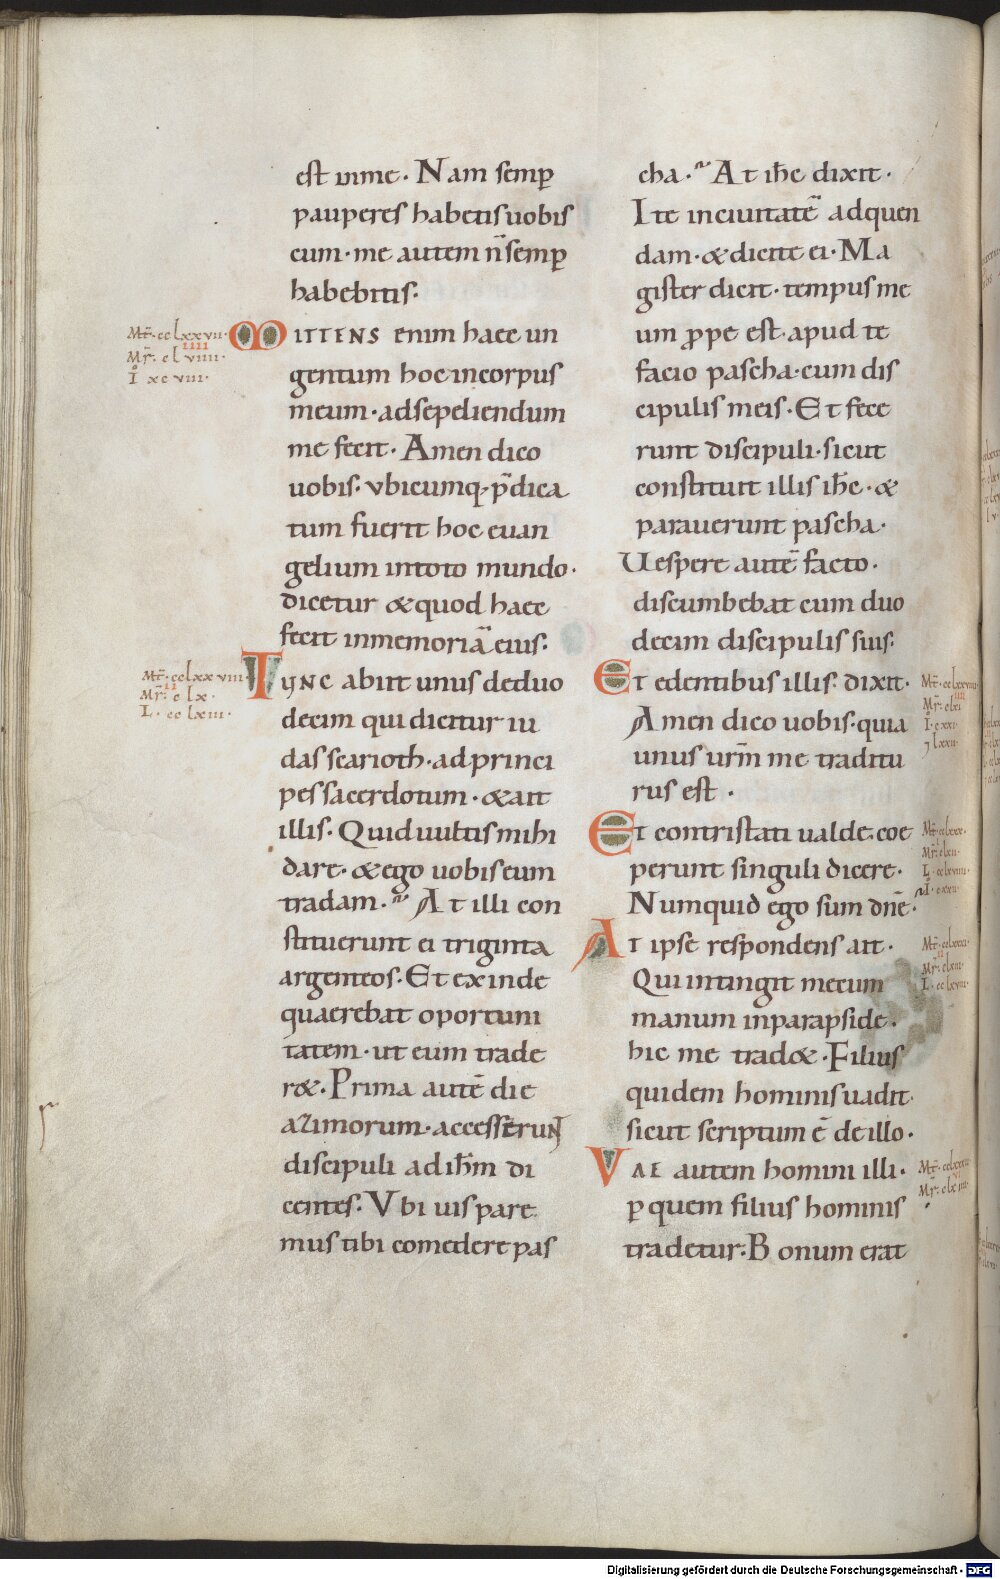 est inme· Nam semꝑ
pauperes habetis uobis
cum· me autem n̄ semꝑ
habebitis·
MITTENS enim haec un
gentum hoc incorpus
meum· adsepeliendum
me fecit· Amen dico
uobis· vbicumq; p̄dica
tum fuerit hoc euan
gelium intoto mundo·
dicetur & quod haec
fecit inmemoriā eius·
TUNC abiit unus deduo
decim qui dicitur iu
das scarioth· ad princi
pes sacerdotum· & ait
illis· Quid uultis mihi
dare· & ego uobis eum
tradam· At illi con
stituerunt ei triginta
argenteos· Et exinde
quaerebat oportuni
tatem· ut eum trade
r&· Prima autē die
azimorum· accesserunt
discipuli ad ih̄m di
centes· Vbi uis pare
mus tibi comedere pas
cha· At ih̄c dixit·
Ite inciuitatē ad quen
dam· & dicite ei· Ma
gister dicit· tempus me
um ꝓpe est· apud te
facio pascha· cum dis
cipulis meis· Et fece
runt discipuli· sicut
constituit illis ih̄c· &
parauerunt pascha·
Uespere autē facto·
discumbebat cum duo
decim discipulis suis·
Et edentibus illis· dixit·
Amen dico uobis· quia
unus ur̄m me traditu
rus est·
Et contristati ualde· coe
perunt singuli dicere·
Numquid ego sum dn̄e·
At ipse respondens ait·
Qui intingit mecum
manum inparapside·
hic me trad&· Filius
quidem hominis uadit·
sicut scriptum ē de illo·
VAE autem homini illi·
ꝑ quem filius hominis
tradetur· Bonum erat
Mt̄· cclxxvii·
Mr̄· clviiii·
iiii
I xcviii·
Mt̄· cclxxviii·
ii
Mr̄· clx·
L· cclxiii·
Digitalisierung gefördert durch die Deutsche Forschungsgemeinschaft - DFG